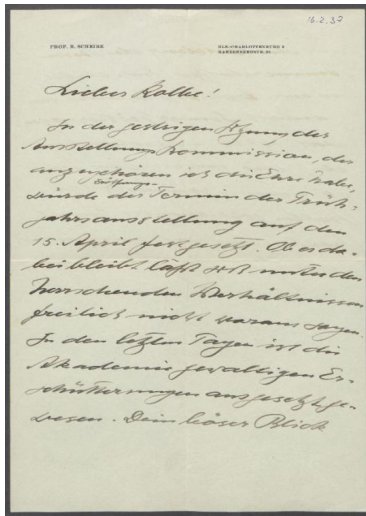 16.2.37
PROF. R. SCHEIBE
BLN-CHARLOTTENBURG 2
HARDENBERGSTR.
Lieber Kolbe!
In der gestrigen Sitzung der
Ausstellungskommission, der
anzugehören ich die Ehre habe,
wurde der Termin der Früh-
jahrsausstellung auf den
15. April festgesetzt. Ob es da-
bei bleibt läßt sich unter den
herrschenden Verhältnissen
freilich nicht voraus sagen.
In den letzten Tagen ist die
Akademie gewaltigen Er-
schütterungen ausgesetzt ge-
wesen. Dein böser Blick